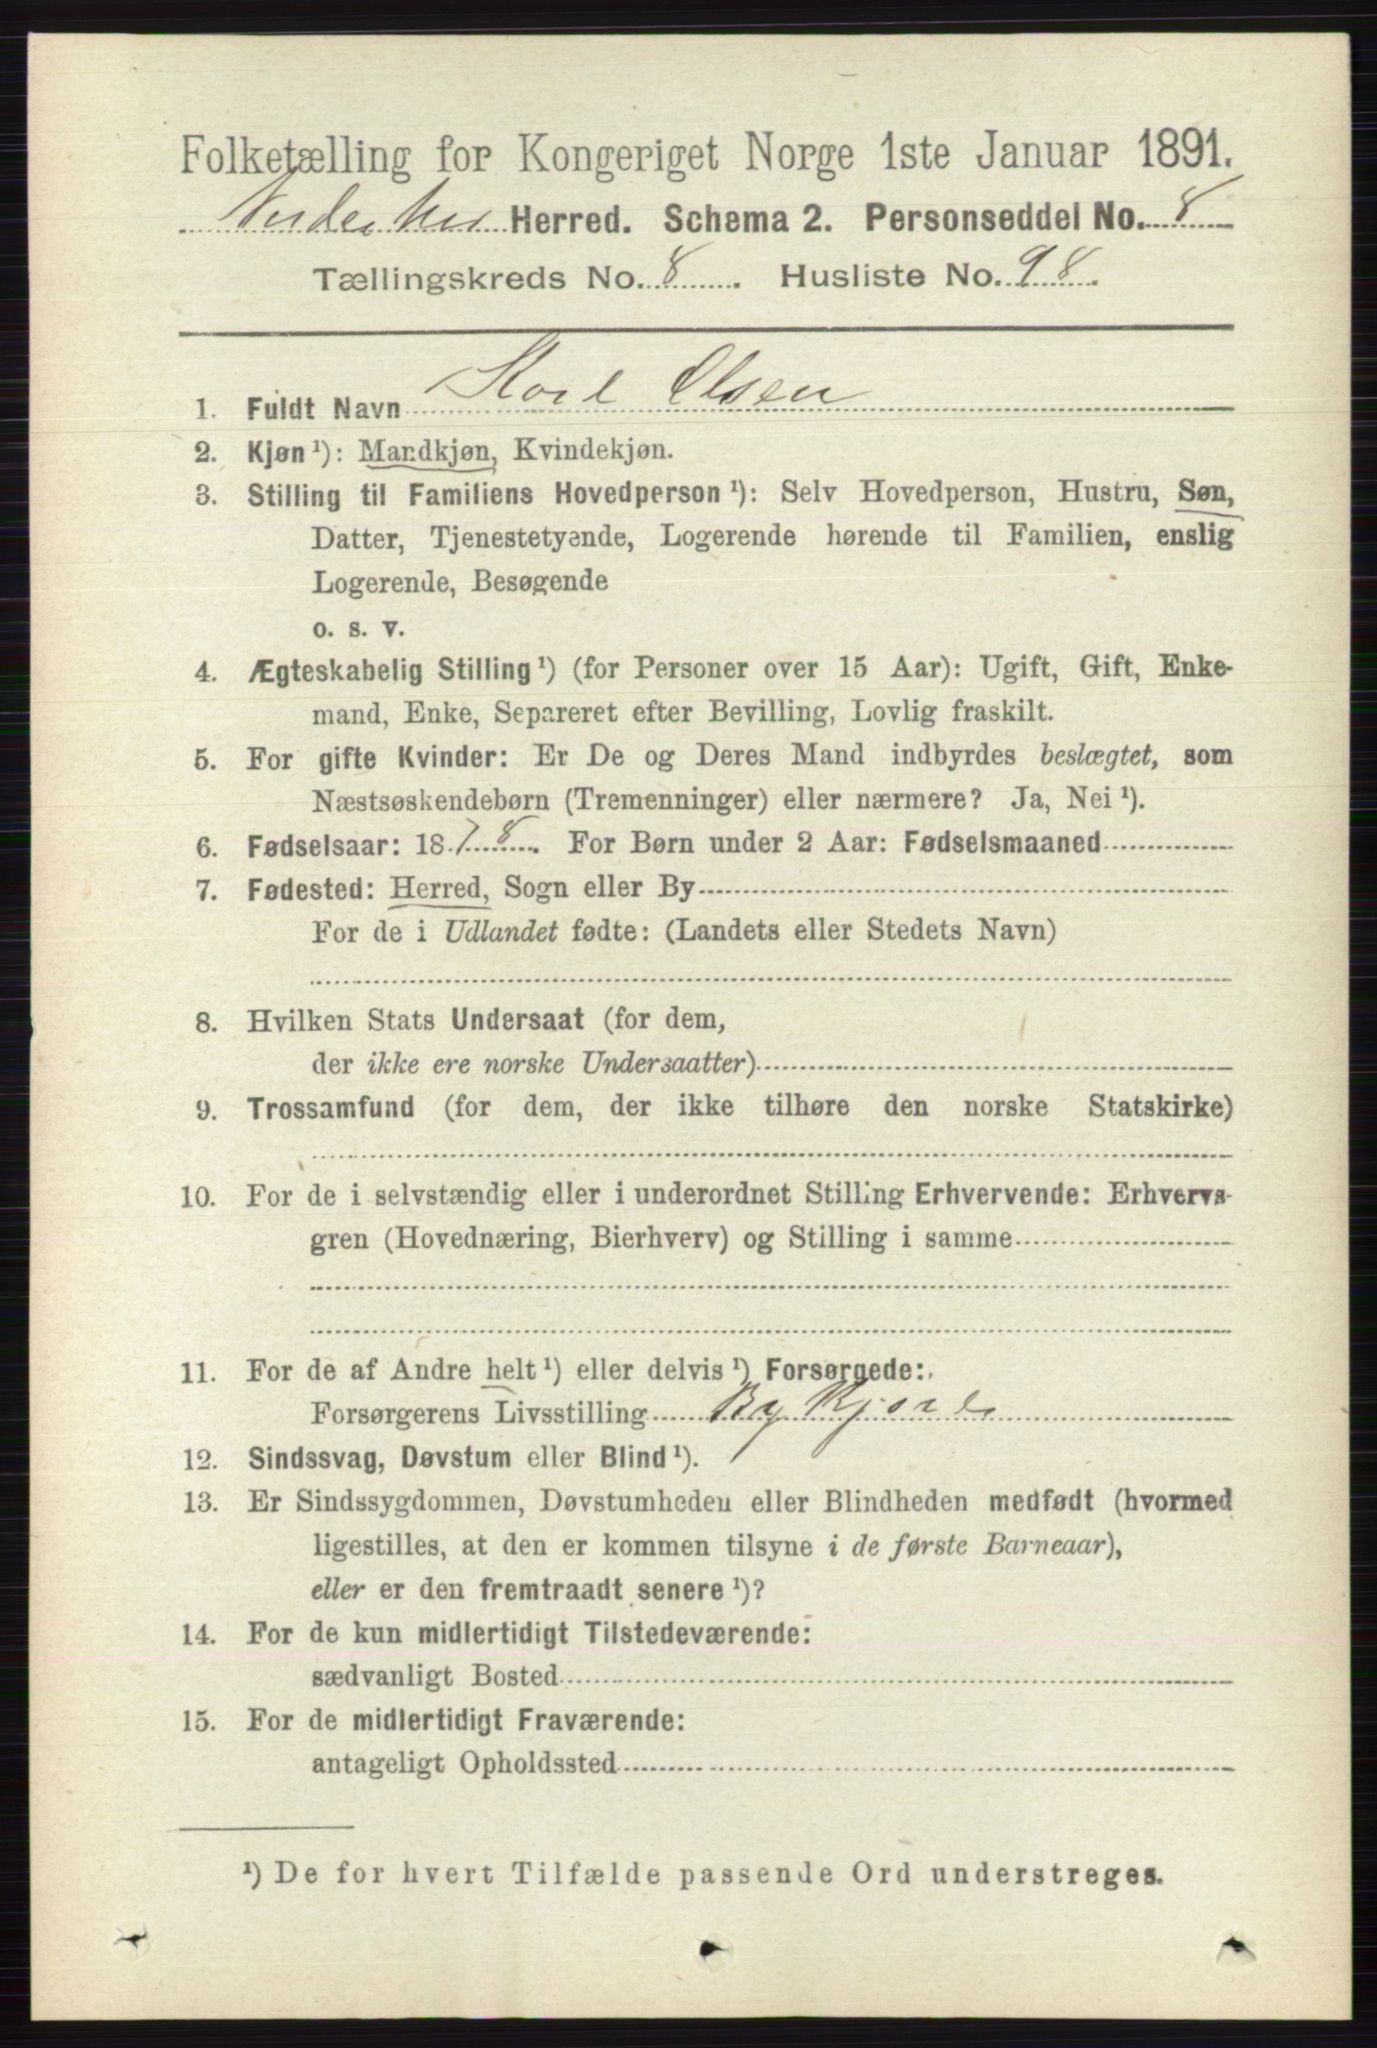 Folketælling for Kongeriget Norge 1ste Januar 1891.
Norderhov Herred. Schema 2. Personseddel No. 8
Tællingskreds No. 8. Husliste No. 98.
1. Fuldt Navn Karl Olsen
2. Kjøn ¹): Mandkjøn, Kvindekjøn.
3. Stilling til Familiens Hovedperson ¹): Selv Hovedperson, Hustru, Søn,
Datter, Tjenestetyende, Logerende hørende til Familien, enslig
Logerende, Besøgende
o. s. v.
4. Ægteskabelig Stilling ¹) (for Personer over 15 Aar): Ugift, Gift, Enke-
mand, Enke, Separeret efter Bevilling, Lovlig fraskilt.
5. For gifte Kvinder: Er De og Deres Mand indbyrdes beslægtet, som
Næstsøskendebørn (Tremenninger) eller nærmere? Ja, Nei ¹).
6. Fødselsaar: 1878. For Børn under 2 Aar: Fødselsmaaned
7. Fødested: Herred, Sogn eller By
For de i Udlandet fødte: (Landets eller Stedets Navn)
8. Hvilken Stats Undersaat (for dem,
der ikke ere norske Undersaatter)
9. Trossamfund (for dem, der ikke tilhøre den norske Statskirke)
10. For de i selvstændig eller i underordnet Stilling Erhvervende: Erhvervs-
gren (Hovednæring, Bierhverv) og Stilling i samme
11. For de af Andre helt ¹) eller delvis ¹) Forsørgede:
Forsørgerens Livsstilling By Kjører
12. Sindssvag, Døvstum eller Blind ¹).
13. Er Sindssygdommen, Døvstumheden eller Blindheden medfødt (hvormed
ligestilles, at den er kommen tilsyne i de første Barneaar),
eller er den fremtraadt senere ¹)?
14. For de kun midlertidigt Tilstedeværende:
sædvanligt Bosted
15. For de midlertidigt Fraværende:
antageligt Opholdssted
¹) De for hvert Tilfælde passende Ord understreges.